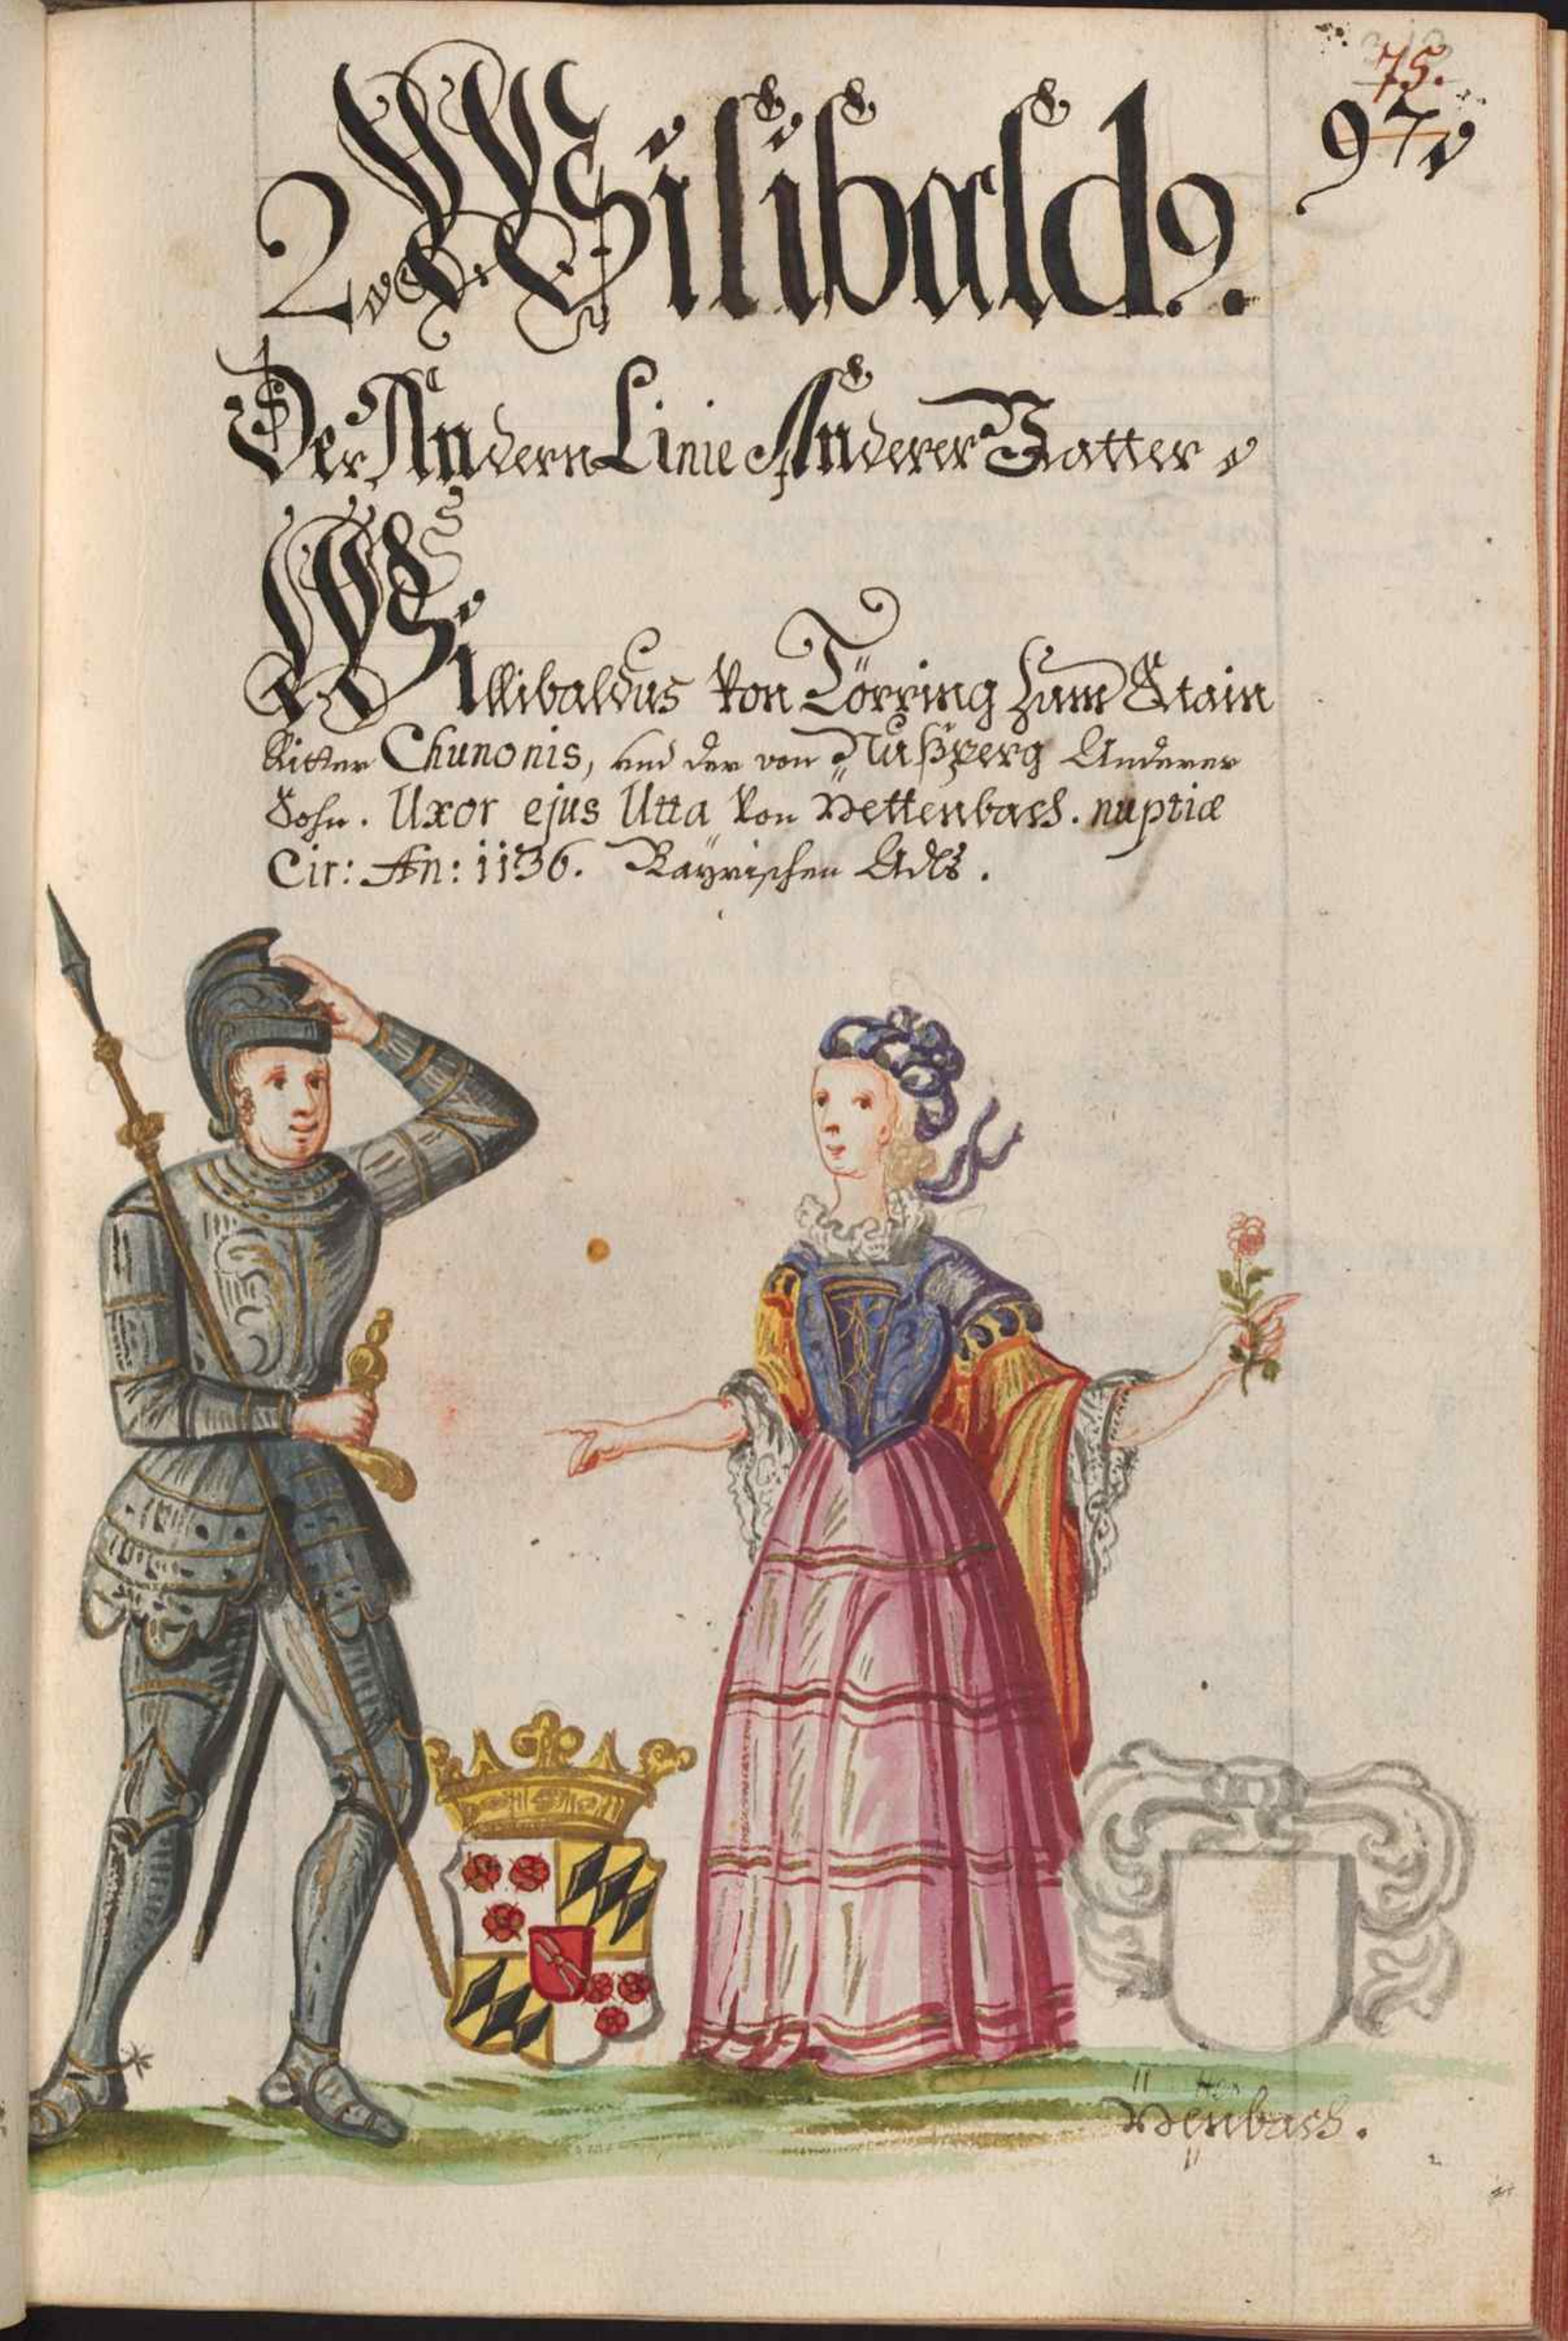 75.
97
2 Wilibald9.
Der Andern Linie Anderer Vatter
Willibaldus von Törring zum Stain
Ritter Chunonis, und der von Nußperg Anderer
Sohn. Uxor ejus Utta von Nettenbach. nuptiæ
Cir: An: 1136. Bayrischen Adls.
ten
Nenbach.